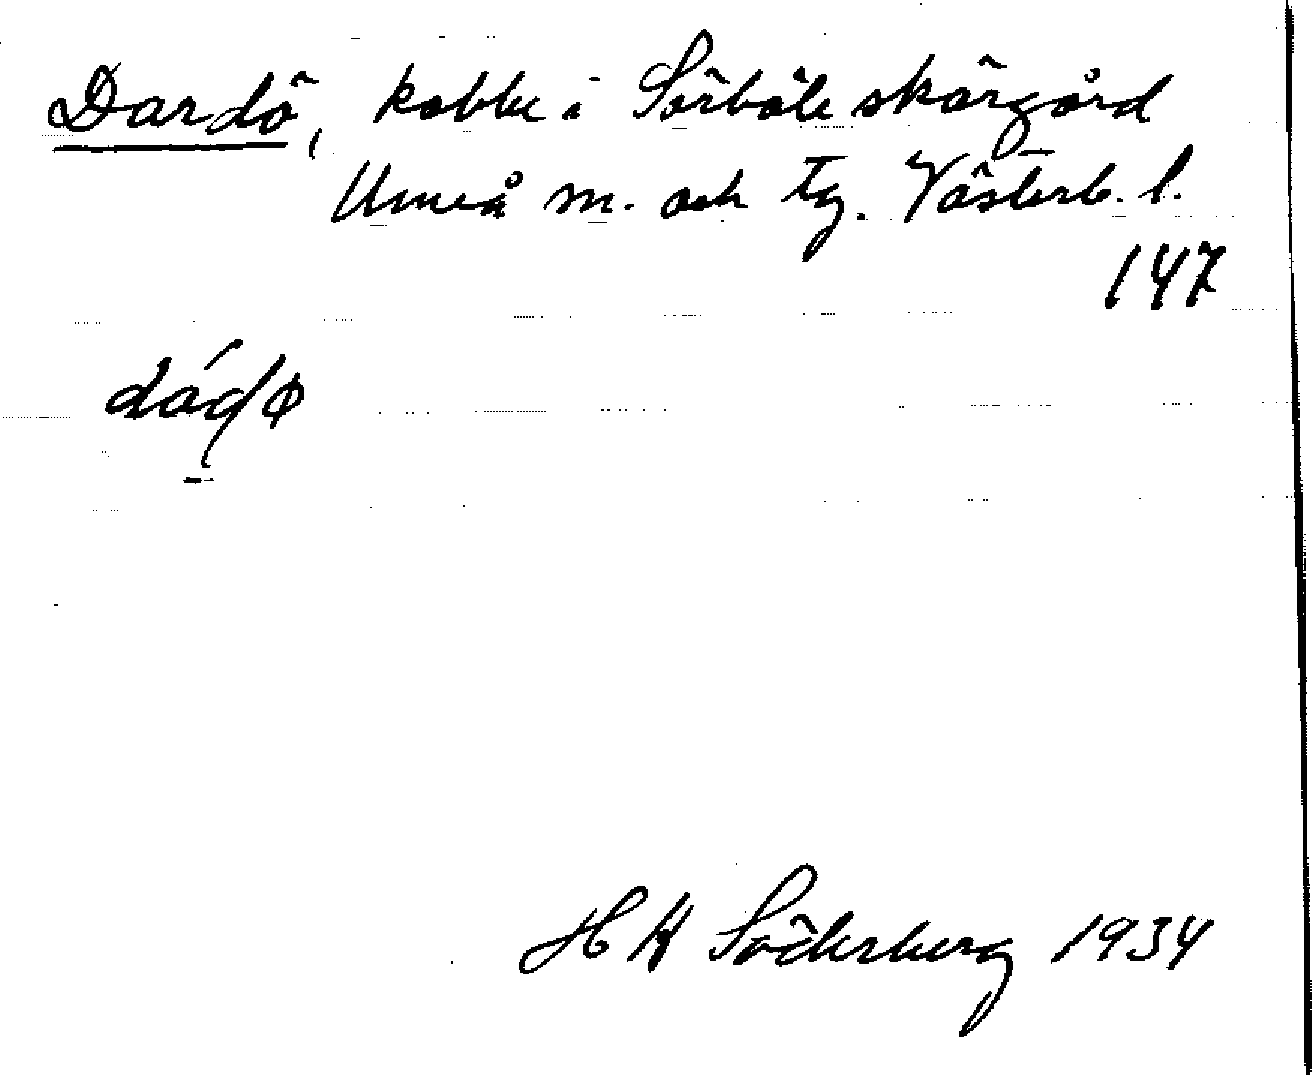 Dardö, kobbe i Sörböle skärgård
Umeå m. och tg. Västerb. l.
147
H H Söderberg 1934